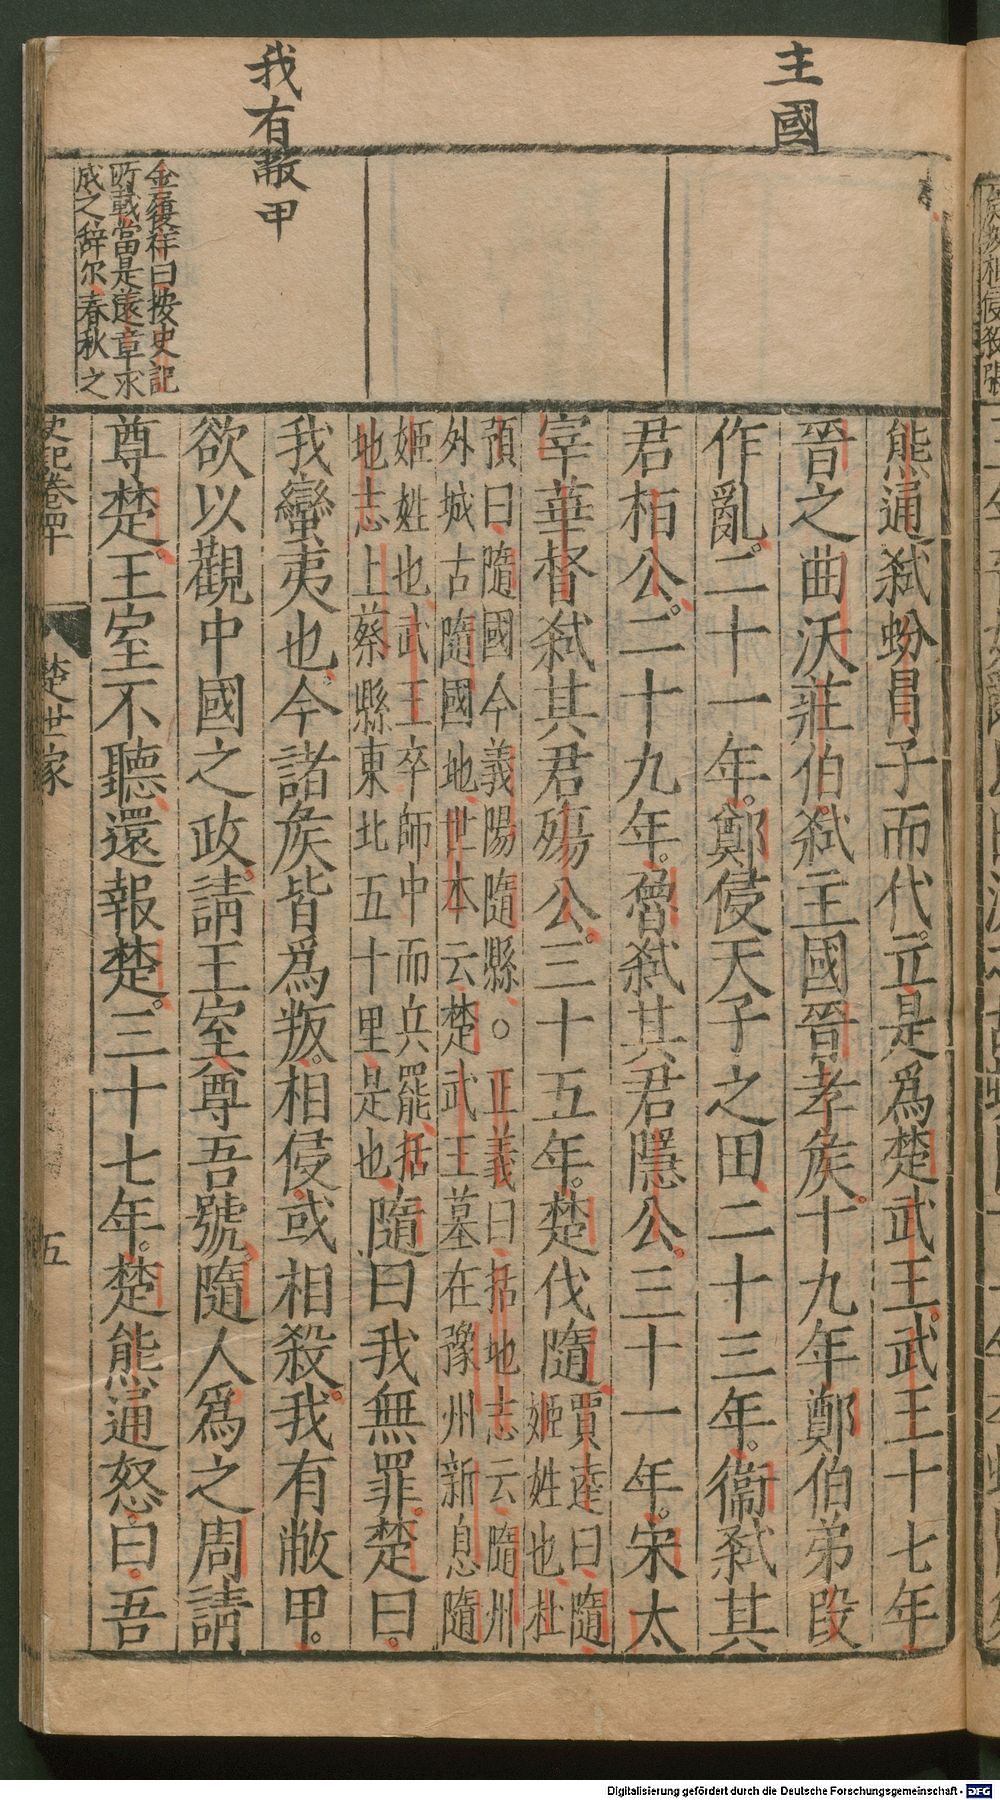 主國
我有敝甲
金履祥曰按史記
所載當是遂章求
成之辭尔春秋之
熊通弑蚡冒子而代立是爲楚武王武王十七年
晉之曲沃莊伯弑主國晉孝矦十九年鄭伯弟段
作亂二十一年鄭侵天子之田二十三年衞弑其
君桓公二十九年魯弑其君隱公三十一年宋太
宰華督弑其君殤公三十五年楚伐隨賈逵曰隨
姬姓也杜
預曰隨國今義陽隨縣○正義曰括地志云隨州
外城古隨國地世本云楚武王墓在豫州新息隨
姬姓也武王卒師中而兵罷括
地志上蔡縣東北五十里是也隨曰我無罪楚曰
我蠻夷也今諸矦皆爲叛相侵或相殺我有敝甲
欲以觀中國之政請王室尊吾號隨人爲之周請
尊楚王室不聽還報楚三十七年楚熊通怒曰吾
史記卷四十
楚世家
五
Digitalisierung gefördert durch die Deutsche Forschungsgemeinschaft - DFG